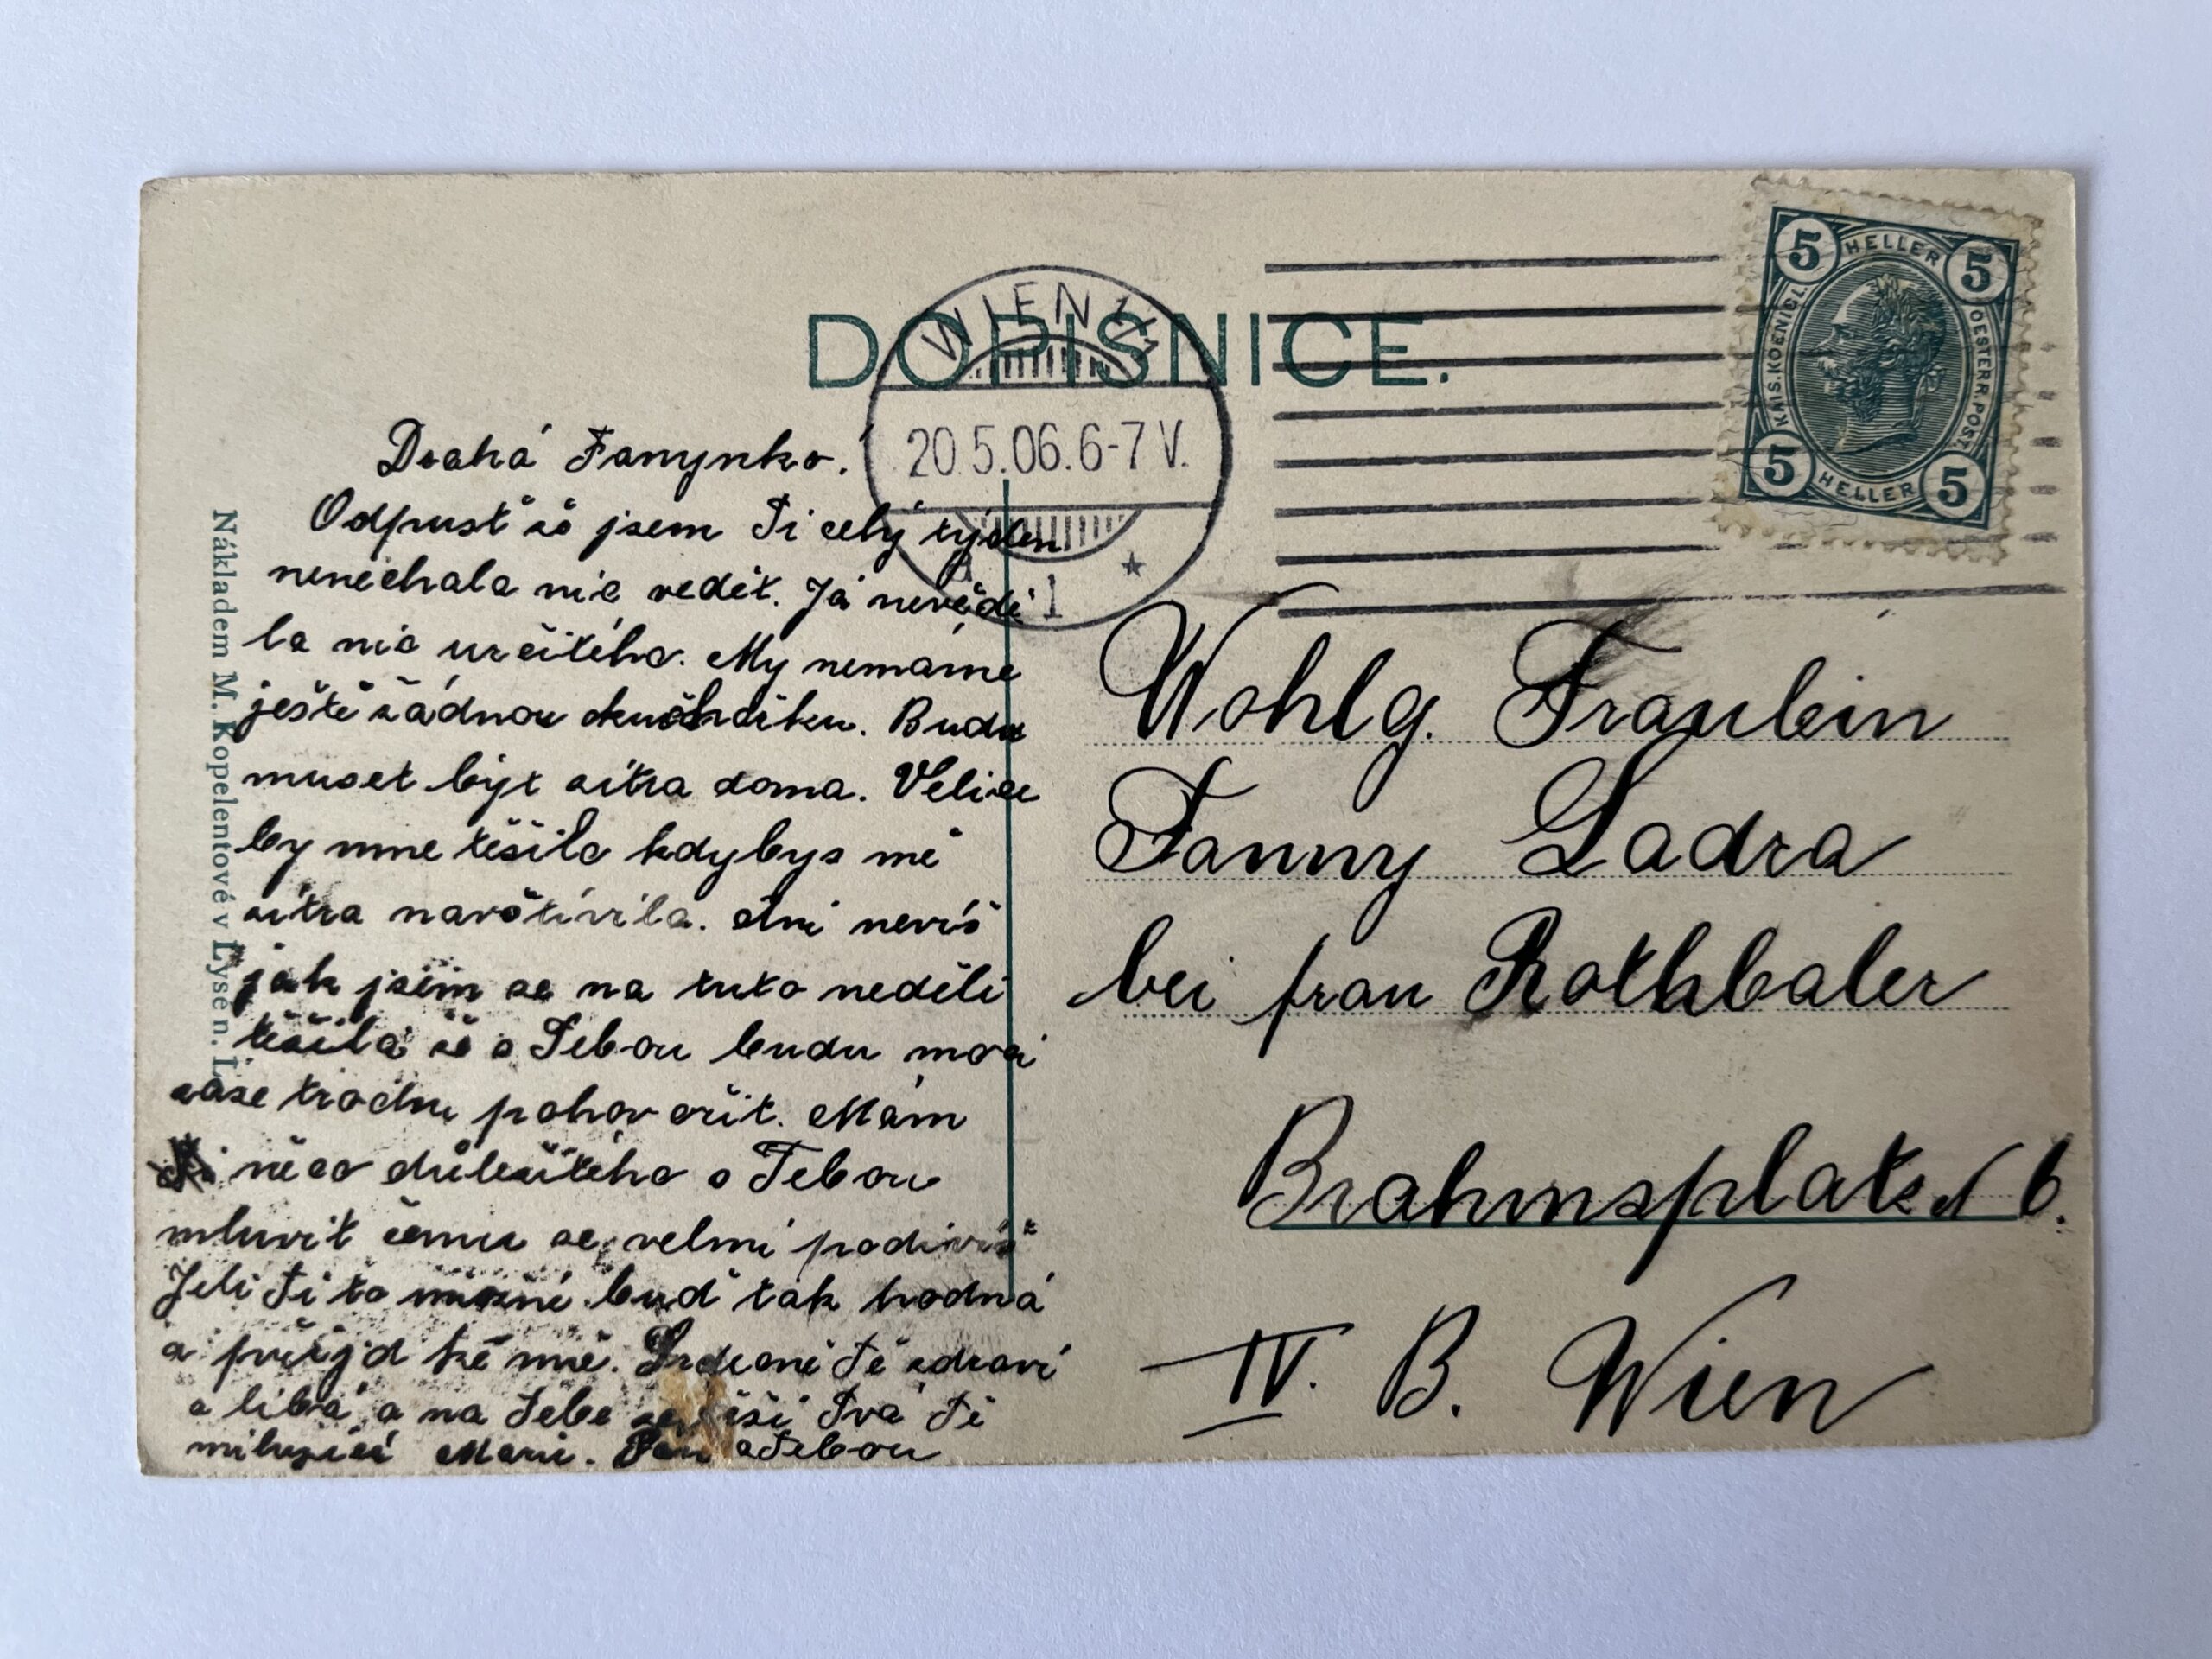 DOPISNICE.
WIEN
20.5.06.6-7 V.
1
5 HELLER 5
KAIS. KOENIGL. OESTERR. POST.
5 HELLER 5
Nákladem M. Kopelentové v Lyse n. L.
Drahá Fanynko.
Odpusť žě jsem Ti celý týden
nenechala nic vedět. Já nevědě
la nic určitého. My nemáme
ještě žádnou kuchařku. Budu
muset být zítra doma. Velice
by mne těšilo kdybys mě
zítra navštívila. Ani nevíš
jak jsem se na tuto neděli
těšila žě s Tebou budu moci
zase trochu pohovořit. Mám
něco důležitého s Tebou
mluvit čemu se velmi podivíš
Jeli Ti to možné buď tak hodná
a přijjd ke mně. Srdečně Tě zdraví
a líbá a na Tebe se těší Tvá Tě
milující Marie. S Tebou
Wohlg. Fraulein
Fanny Ladra
bei frau Rothbaler
Brahmsplatz N 6.
IV. B. Wien